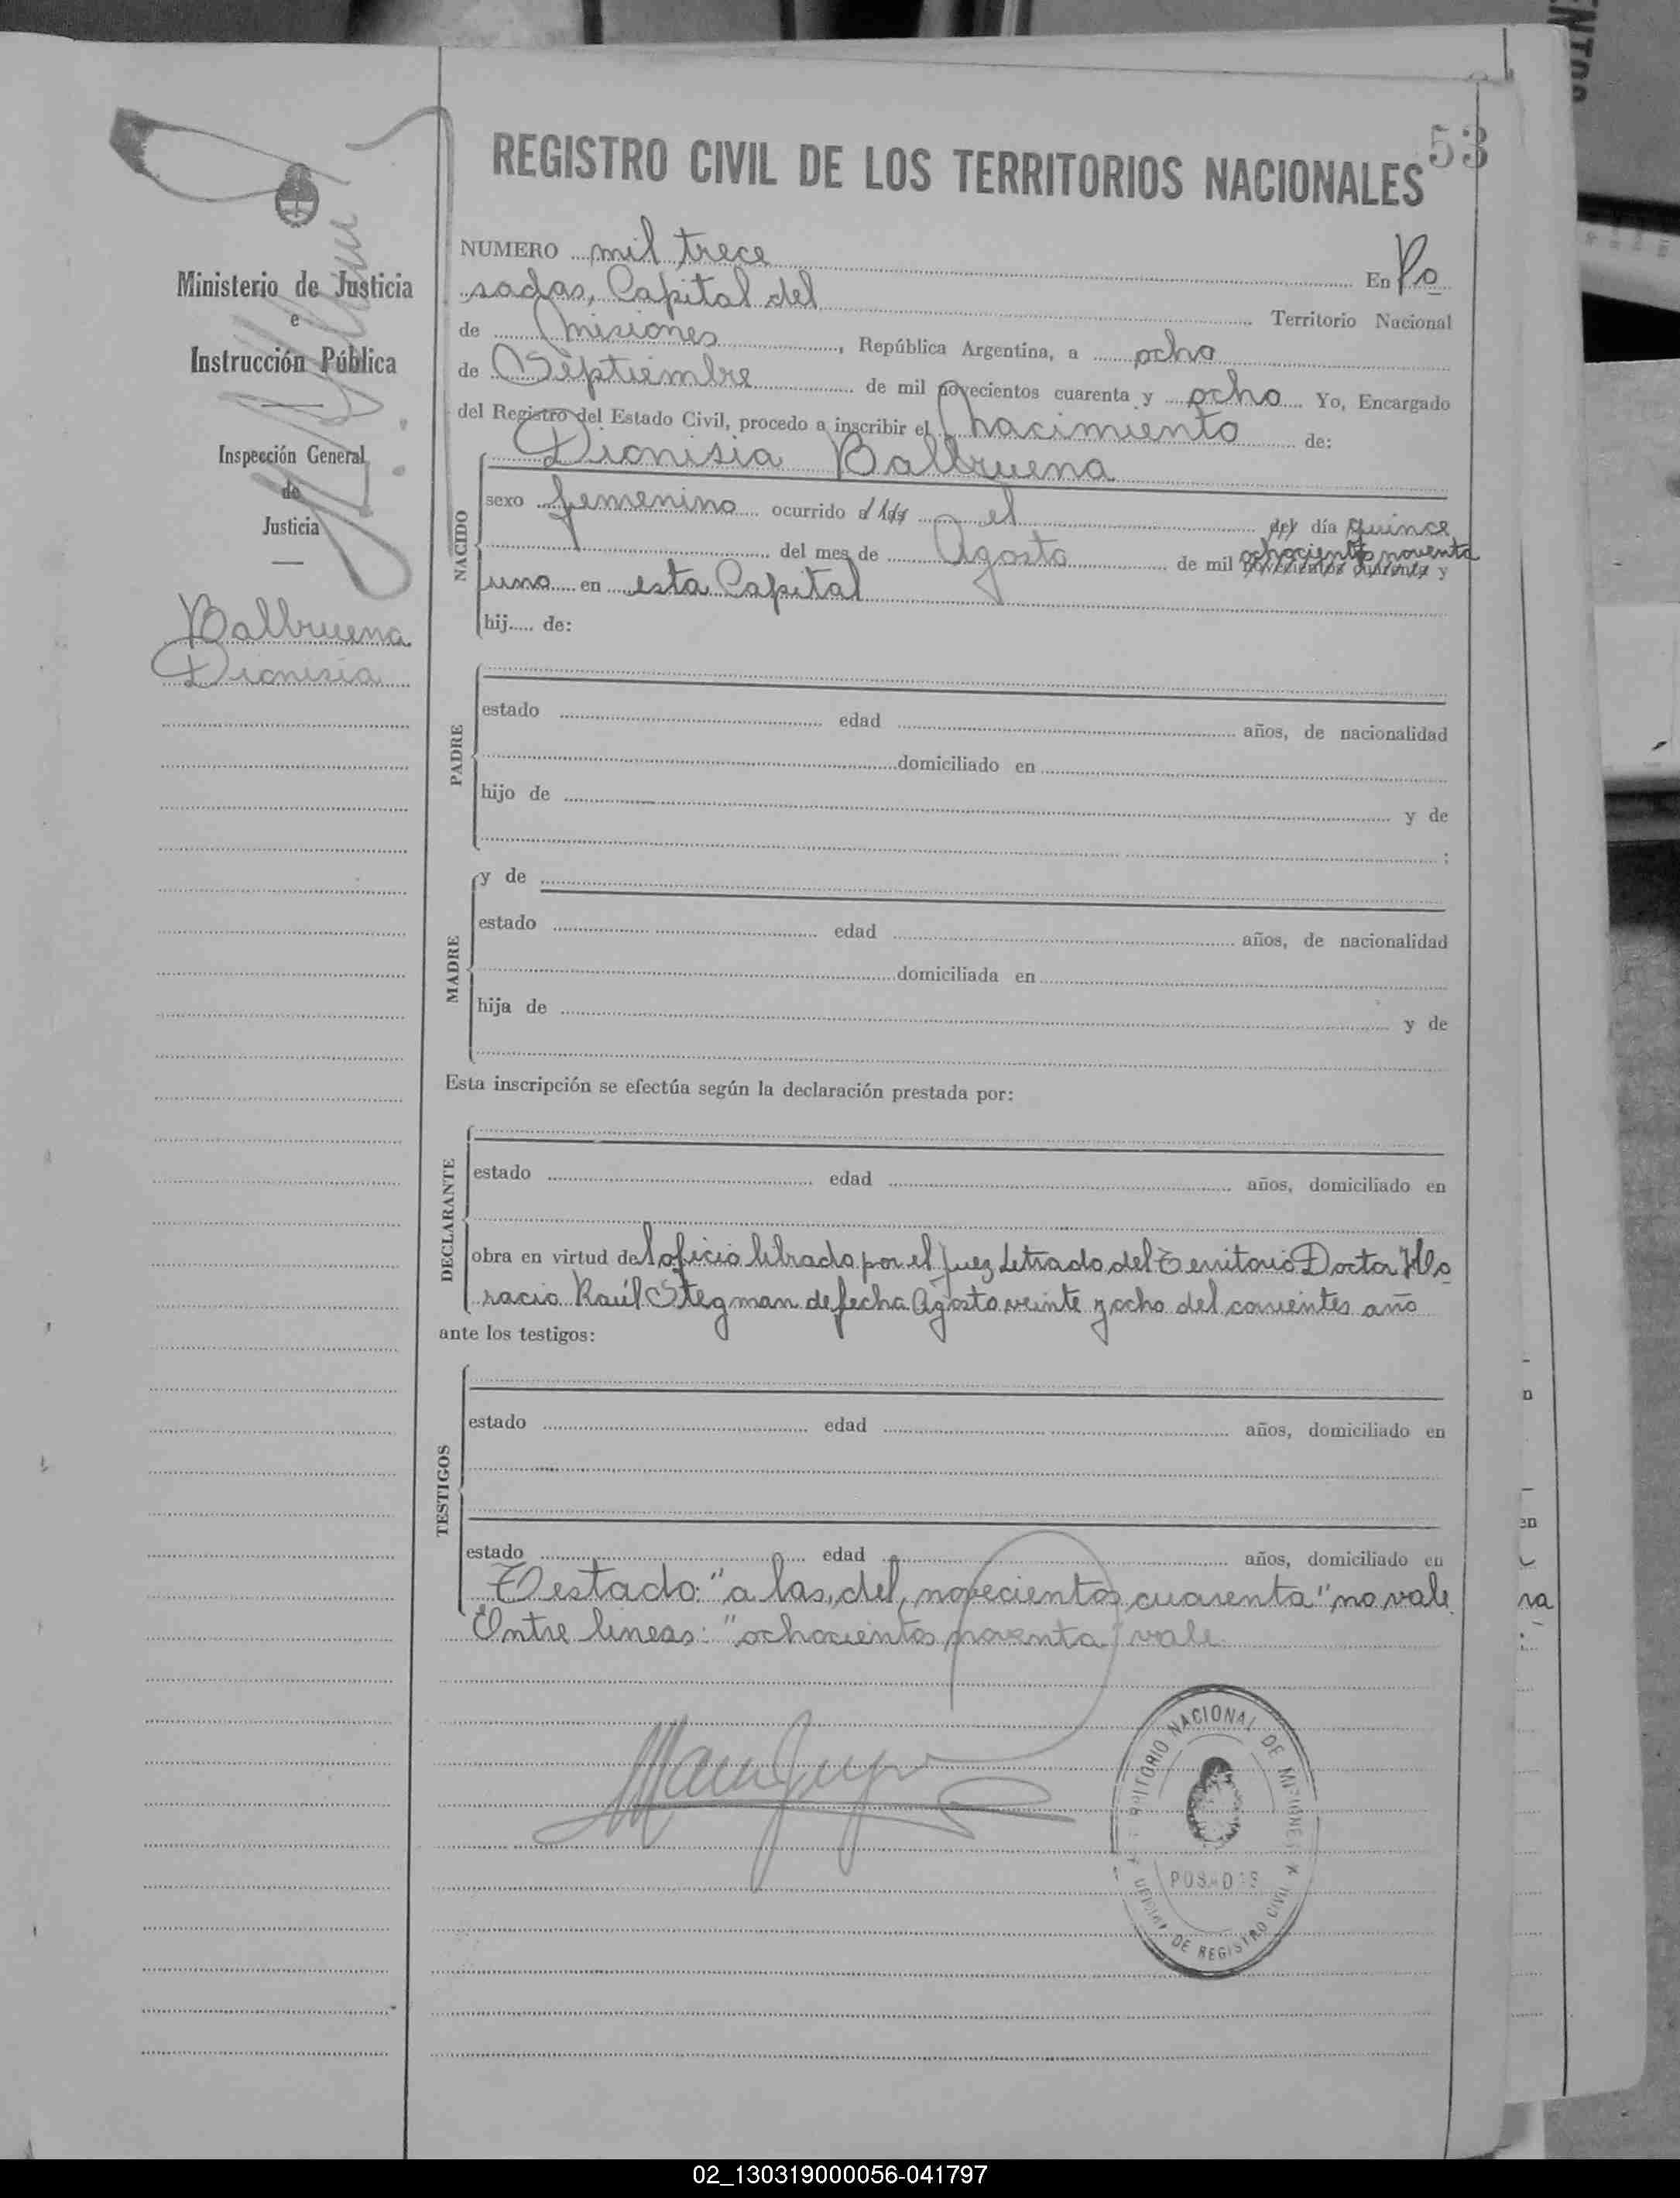 53
REGISTRO CIVIL DE LOS TERRITORIOS NACIONALES
Ministerio de Justicia
e
Instrucción Pública
Inspección General
de
Justicia
Balbruena
Dionisia
NUMERO mil trece En Po
sadas, Capital del Territorio Nacional
de Misiones, República Argentina, a ocho
de Septiembre de mil novecientos cuarenta y ocho Yo, Encargado
del Registro del Estado Civil, procedo a inscribir el nacimiento de:
NACIDO
Dionisia Balbruena
sexo femenino ocurrido a las el del día quince
del mes de Agosto de mil ochocientos noventa novecientos cuarenta y
uno en esta Capital
hij..... de:
PADRE
estado edad años, de nacionalidad
domiciliado en
hijo de y de
;
MADRE
y de
estado edad años, de nacionalidad
domiciliada en
hija de y de
Esta inscripción se efectúa según la declaración prestada por:
DECLARANTE
estado edad años, domiciliado en
obra en virtud del oficio librado por el Juez Letrado del Territorio Doctor Ho
racio Raúl Stegman de fecha Agosto veinte y ocho del corrientes año
ante los testigos:
TESTIGOS
estado edad años, domiciliado en
estado edad años, domiciliado en
Testado: "a las, del, novecientos cuarenta" no vale.
Entre lineas: "ochocientos noventa" vale.
TERRITORIO NACIONAL DE MISIONES
POSADAS
DE REGISTRO CIVIL
en
ra
02_130319000056-041797